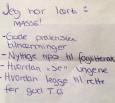 Jeg har lært:
MASSE!
- Gode praktiske
tilnærminger
- Nyttige tips til
- Hvordan "se" ungene
- Hvordan legge til rette
for god T.O.